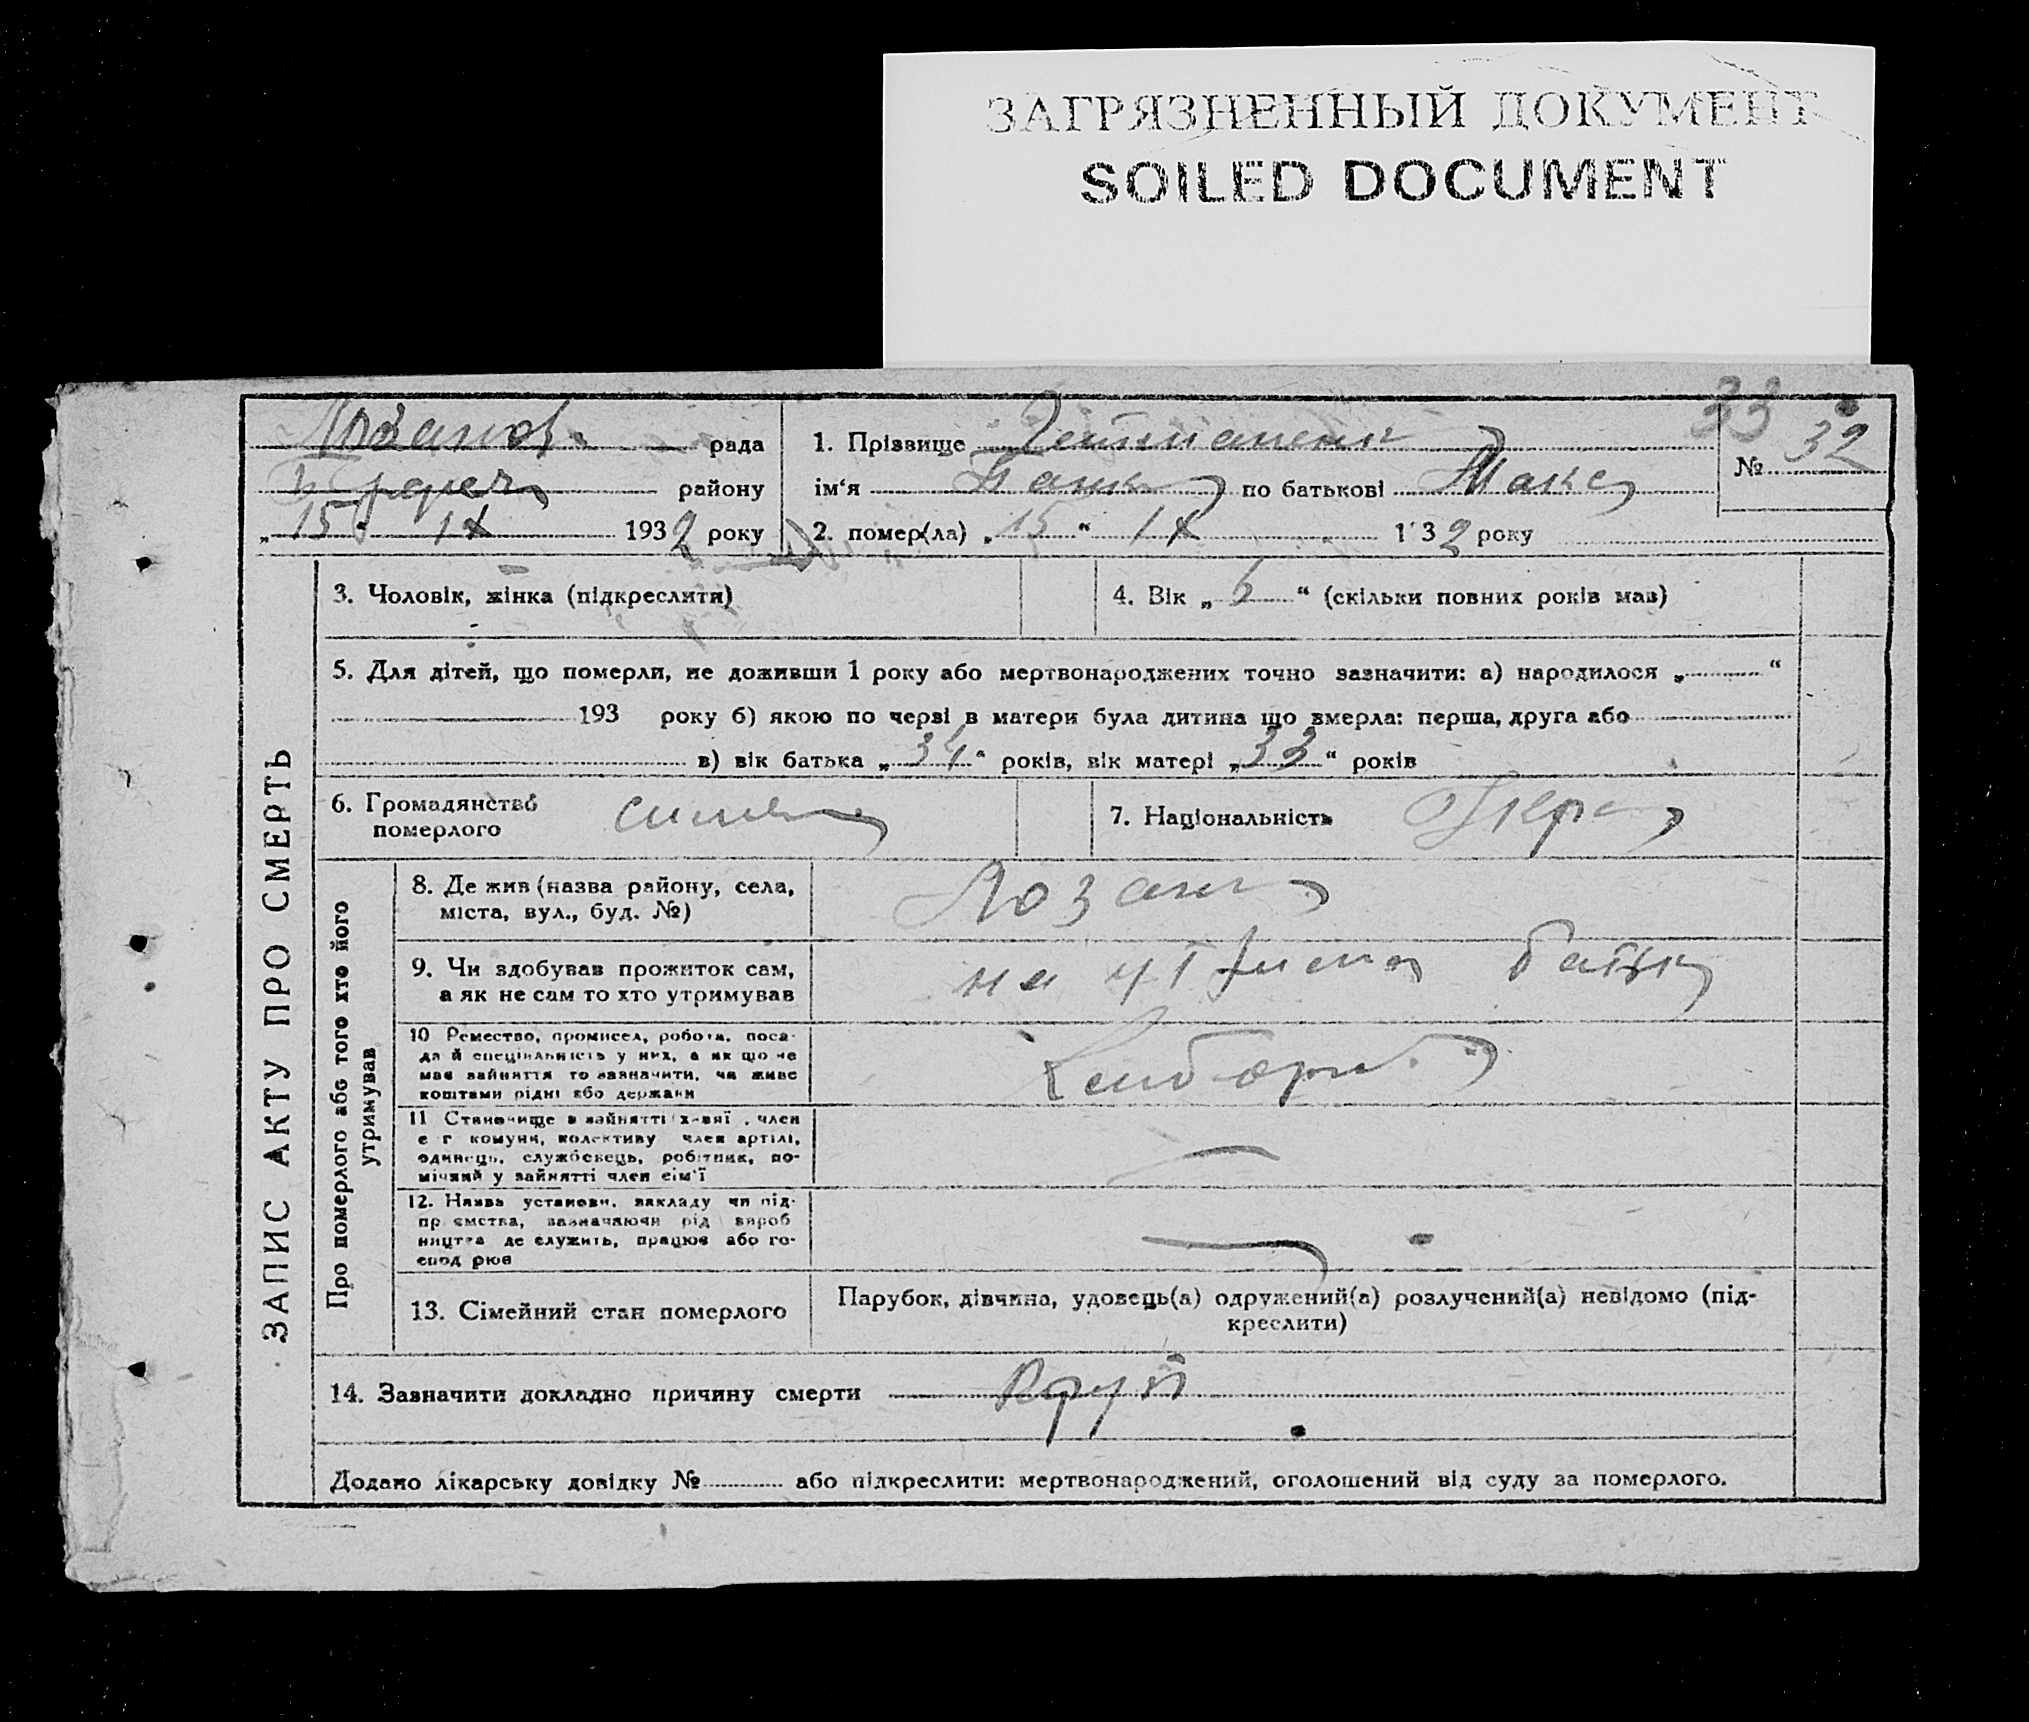 ЗАГРЯЗНЕННЫЙ ДОКУМЕНТ
SOILED DOCUMENT
33
рада
району
„ 15 “ IX 1932 року
1. Прізвище
№ 32
ім‘я по батькові
2. помер(ла) „ 15 “ IX 1932 року
ЗАПИС АКТУ ПРО СМЕРТЬ
3. Чоловік, жінка (підкреслити)
4. Вік „ “ (скільки повних років мав)
5. Для дітей, що померли, не доживши 1 року або мертвонароджених точно зазначити: а) народилося „ “
193 року б) якою по черзі в матери була дитина що вмерла: перша, друга або
в) вік батька „ 34 “ років, вік матері „ 33 “ років
6. Громадянство
померлого
7. Національність Укра
Про померлого або того хто його
утримував
8. Де жив (назва району, села,
міста, вул., буд. №)
Лозани
9. Чи здобував прожиток сам,
а як не сам то хто утримував
на батьк
10 Ремество, промисел, робота, поса-
да й спеціяльність у них, а як що не
має зайняття то зазначити, чи живе
коштами рідні або держави
11 Становище в зайнятті член
с г комуни, колективу член артілі,
одинець, службовець, робітник, по-
мічний у зайнятті член сім'ї
12. Назва установи, закладу чи під-
приємства, зазначаючи рід вироб
ництва де служить, працює або го-
спод рює
13. Сімейний стан померлого
Парубок, дівчина, удовець(а) одружений(а) розлучений(а) невідомо (під-
креслити)
14. Зазначити докладно причину смерти круп
Додано лікарську довідку № або підкреслити: мертвонароджений, оголошений від суду за померлого.